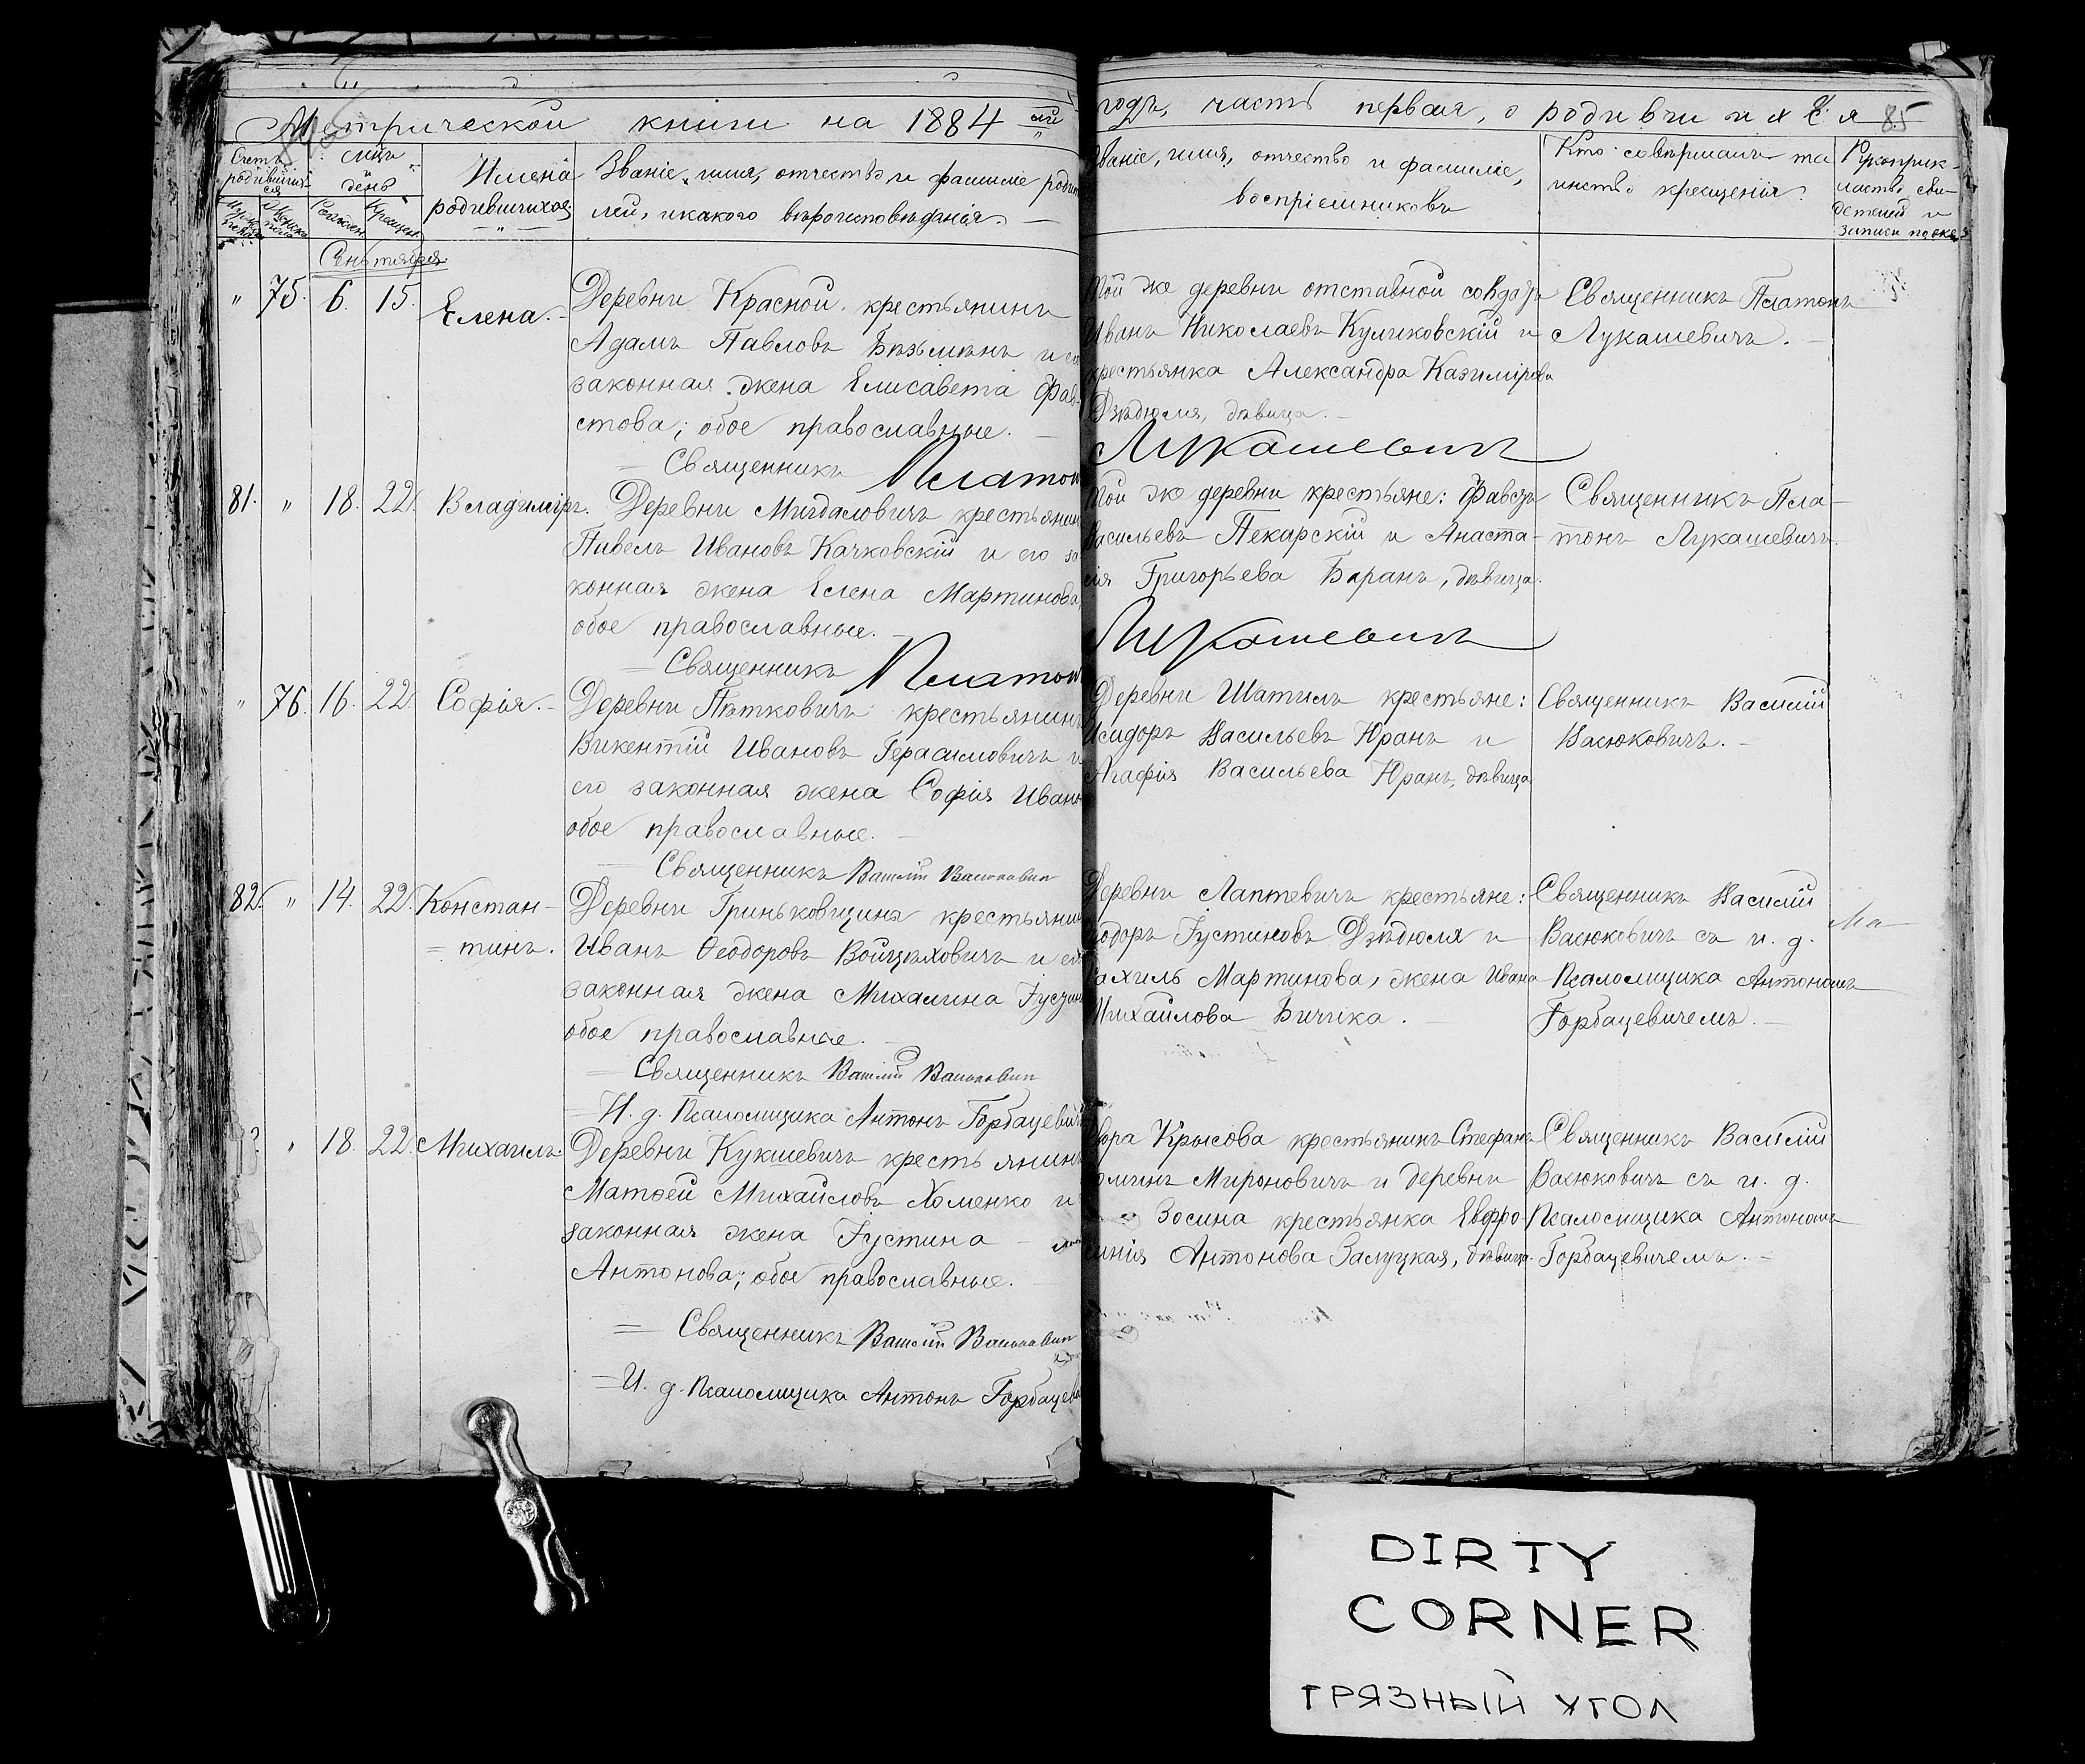 Метрической книги на 1884 ый
годъ, часть первая, о родившихся 85
Счетъ родившихся
мѣсяцъ и день
Рожден. Крещен.
Имена родившихся
Званіе, имя, отчество и фамиліе родит
лей, и какого вѣроисповѣданія. —
Званіе, имя, отчество и фамиліе,
воспріемниковъ
Кто совершалъ та
инство крещенія.
Рукоприк-
ладство сви-
детелей и
записи по же
Сентября
" 75. 6. 15. Елена. —
Деревни Красной крестьянинъ
Адамъ Павловъ Бѣзьмѣнъ и ео
законная жена Елисавета Фав-
стова; обое православные. —
Священникъ Платонъ Лукашевичъ
Той же деревни отставной солдатъ
Иванъ Николаевъ Куликовскій и
крестьянка Александра Казимірова
Дзѣдюля, дѣвица. —
Священникъ Платонъ
Лукашевичъ. —
81. " 18. 22. Владиміръ.
Деревни Мигдаловичъ крестьянин
Павелъ Ивановъ Качковскій и его за
конная жена Елена Мартинова,
обое православные. —
Священникъ Платонъ Лукашевичъ
Той же деревни крестьяне: Фавстъ
Васильевъ Пекарскій и Анаста-
сія Григорьева Баранъ, дѣвица.
Священникъ Пла-
тонъ Лукашевичъ.
" 76. 16. 22. Софія. —
Деревни Пѣтковичъ крестьянинъ
Викентій Ивановъ Герасимовичъ и
его законная жена Софія Иван
обое православные. —
Священникъ Василій Васюковичъ
Деревни Шатилъ крестьяне:
Исидоръ Васильевъ Юранъ и
Агафія Васильева Юранъ, дѣвица
Священникъ Василій
Васюковичъ. —
82. " 14. 22. Констан-
= тинъ.
Деревни Гриньковщина крестьянин
Иванъ Ѳеодоровъ Войцѣховичъ и его
законная жена Михалина Іустин
обое православные. —
Священникъ Василій Васюковичъ
И. д. Псаломщика Антонъ Горбацевичъ
Деревни Лаптевичъ крестьяне:
одоръ Іустиновъ Дзѣдюля и
ахиль Мартинова, жена Ивана
Михайлова Бичика. —
Священникъ Василій
Васюковичъ съ и. д.
Псаломщика Антономъ
Горбацевичемъ. —
" 18. 22. Михаилъ
Деревни Кукшевичъ крестьянинъ
Матѳей Михайловъ Хоменко и
законная жена Іустина —
Антонова; обое православные.
= Священникъ Василій Васюковичъ
= И. д. Псаломщика Антонъ Горбацев
вора Крысова крестьянинъ Стефанъ
оминъ Мироновичъ и деревни
Зосина крестьянка Евфро-
синія Антонова Залуцкая, дѣвица.
Священникъ Василій
Васюковичъ съ и. д.
Псаломщика Антономъ
Горбацевичемъ. —
DIRTY
CORNER
ГРЯЗНЫЙ УГОЛ